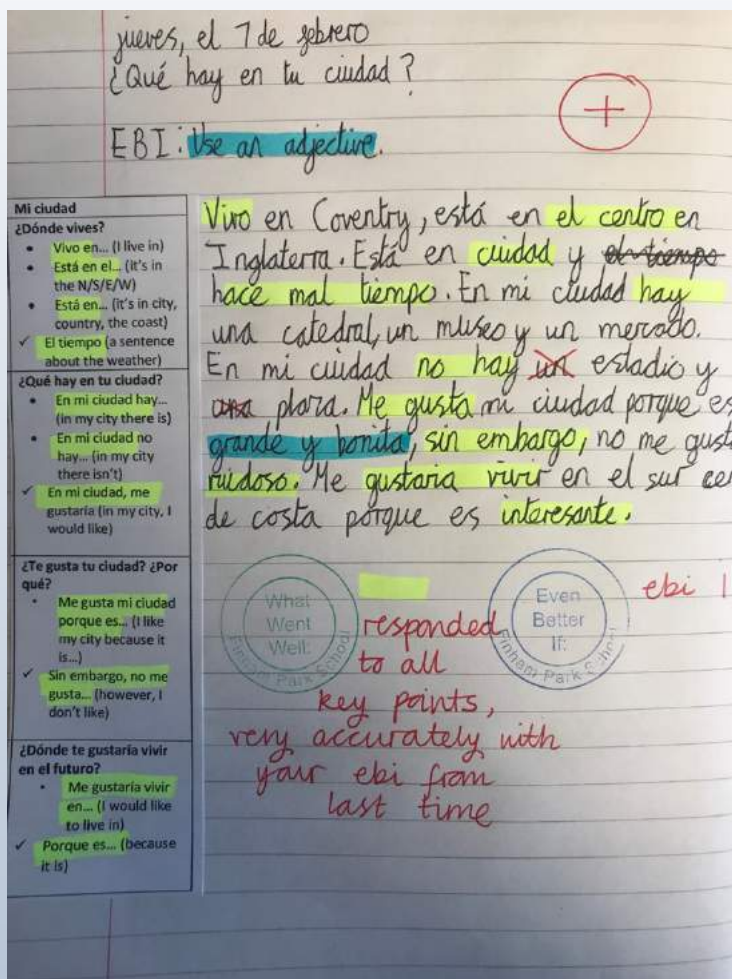 jueves, el 7 de febrero
¿Qué hay en tu ciudad?
EBI: Use an adjective.
Mi ciudad
¿Dónde vives?
• Vivo en... (I live in)
• Está en el... (it's in
the N/S/E/W)
• Está en... (it's in city,
country, the coast)
✓ El tiempo (a sentence
about the weather)
¿Qué hay en tu ciudad?
• En mi ciudad hay...
(in my city there is)
• En mi ciudad no
hay... (in my city
there isn't)
✓ En mi ciudad, me
gustaría (in my city, I
would like)
¿Te gusta tu ciudad? ¿Por
qué?
• Me gusta mi ciudad
porque es... (I like
my city because it
is...)
✓ Sin embargo, no me
gusta... (however, I
don't like)
¿Dónde te gustaría vivir
en el futuro?
• Me gustaría vivir
en... (I would like
to live in)
✓ Porque es... (because
it is)
Vivo en Coventry, está en el centro en
Inglaterra. Está en ciudad y el tiempo
hace mal tiempo. En mi ciudad hay
una catedral, un museo y un mercado.
En mi ciudad no hay un estadio y
una plaza. Me gusta mi ciudad porque es
grande y bonita, sin embargo, no me gust
ruidoso. Me gustaria vivir en el sur cer
de costa porque es interesante.
What
Went
Well:
Finham Park School
Even
Better
If:
Finham Park School
ebi
responded
to all
key points,
very accurately with
your ebi from
last time